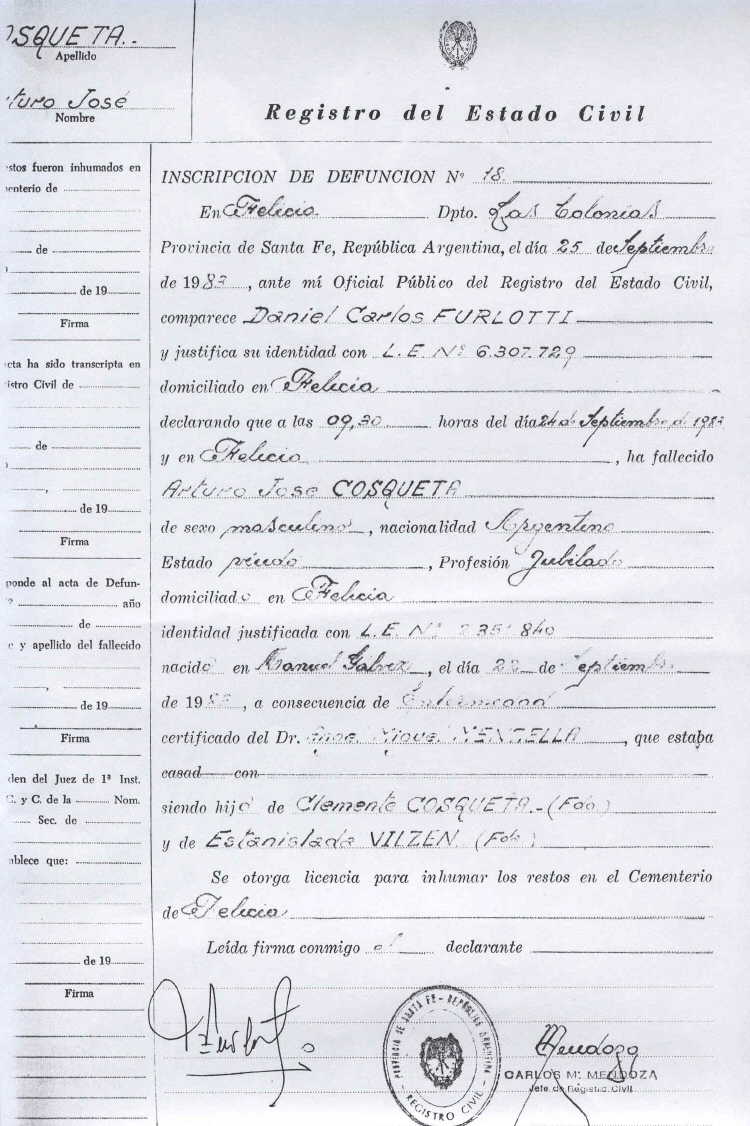 OSQUETA.-
Apellido
rturo José
Nombre
stos fueron inhumados en
enterio de
de
de 19
Firma
cta ha sido transcripta en
istro Civil de
de
,
de 19
Firma
ponde al acta de Defun-
año
de
e y apellido del fallecido
,
de 19
Firma
den del Juez de 1ª Inst.
C. y C. de la Nom.
Sec. de
ablece que:
de 19
Firma
Registro del Estado Civil
INSCRIPCION DE DEFUNCION Nº 18
En Felicia Dpto. Las Colonias
Provincia de Santa Fe, República Argentina, el día 25 de Septiembre
de 1983, ante mí Oficial Público del Registro del Estado Civil,
comparece Daniel Carlos FURLOTTI
y justifica su identidad con L.E. Nº 6.307.729
domiciliado en Felicia
declarando que a las 09,30 horas del día 24 de Septiembre de 1983
y en Felicia, ha fallecido
Arturo José COSQUETA
de sexo masculino, nacionalidad Argentino
Estado viudo, Profesión Jubilado
domiciliado en Felicia
identidad justificada con L.E. Nº 840
nacido en Manuel Gálvez, el día de Septiembre
de 19, a consecuencia de Enfermedad
certificado del Dr. Miguel, que estaba
casad con
siendo hijo de Clemente COSQUETA.-(Fdo)
y de Estanislada VILZEN. (Fdo)
Se otorga licencia para inhumar los restos en el Cementerio
de Felicia
Leída firma conmigo el declarante
Furlotti
PROVINCIA DE SANTA FE - REPUBLICA ARGENTINA
REGISTRO CIVIL
Mendoza
CARLOS M. MENDOZA
Jefe de Registro Civil